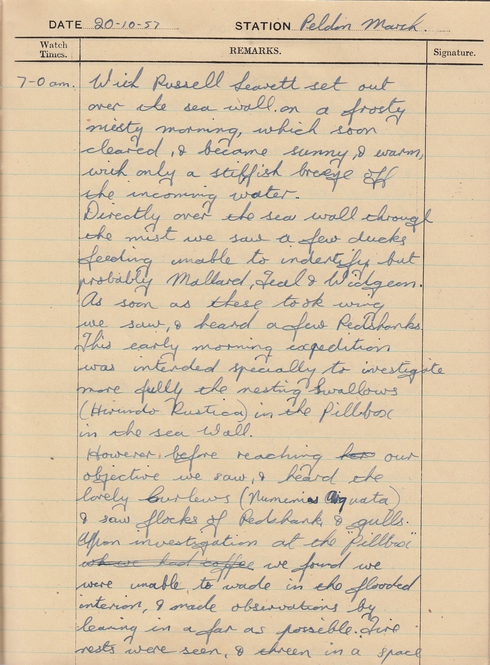 DATE 20-10-57 STATION Peldon Marsh.
Watch Times. REMARKS. Signature.
7-0 am. With Russell Leavett set out
over the sea wall on a frosty
misty morning, which soon
cleared, & became sunny, & warm,
with only a stiffish breeze off
the incoming water.
Directly over the sea wall through
the mist we saw a few ducks
feeding unable to indertify but
probably Mallard, Teal & Widgeon.
As soon as these took wing
we saw, & heard a few Redshanks.
This early morning expedition
was intended specially to investigate
more fully the nesting Swallows
(Hirundo Rustica) in the Pillbox
in the sea wall.
However before reaching our
objective we saw, & heard the
lovely Curlews (Numenius Arquata)
& saw flocks of Redshank, & gulls.
Upon investigation at the "Pillbox"
where we had coffee we found we
were unable to wade in the flooded
interior, & made observations by
leaning in a far as possible. Five
nests were seen, & three in a space